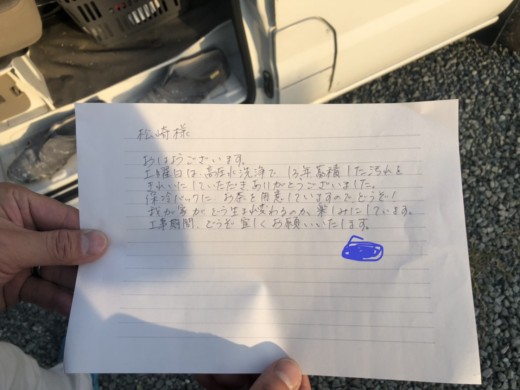 松崎様
おはようございます。
土曜日は、高圧水洗浄で、13年蓄積した汚れを
きれいにしていただきありがとうございました。
保冷バックに、お茶を用意していますので、どうぞ!
我が家が、どう生まれ変わるのか、楽しみにしています。
工事期間、どうぞ宜しくお願いいたします。